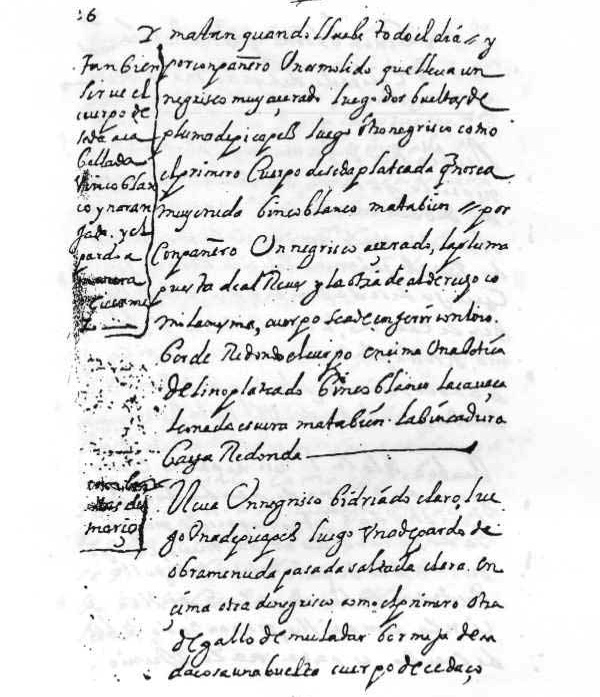 26
Y matan quando llueba todo el dia // y
por conpañero Un armolido que lleva un
negrisco muy açerado luego dos bueltas de
pluma de picapes luego otro negrisco como
el primero Cuerpo de seda plateada q̃ no sea
muy cruda binco blanco mata bien // por
Conpañero Un negrisco açerado, la pluma
puesta de al Reves y la otra de al derecho co
mo la mesma, cuerpo sea de
berde Redondo el cuerpo encima Una
de lino plateado binco blanco la cavaça
leonada escura mata bien. la bincadura
baya Redonda
Tanbien
sirve el
cuerpo de
seda aca
bellada
Vinco blan
co y naran
jado. y el
pardo a
manera
con las
de
março
Lleva Un negrisco bidriado claro, lue
go Una de picapes luego Una de pardo de
obra menuda pasada saltada clara. en
çima otra de negrisco como el primero otra
de gallo de muladar bermeja de
una buelta cuerpo de cedaço